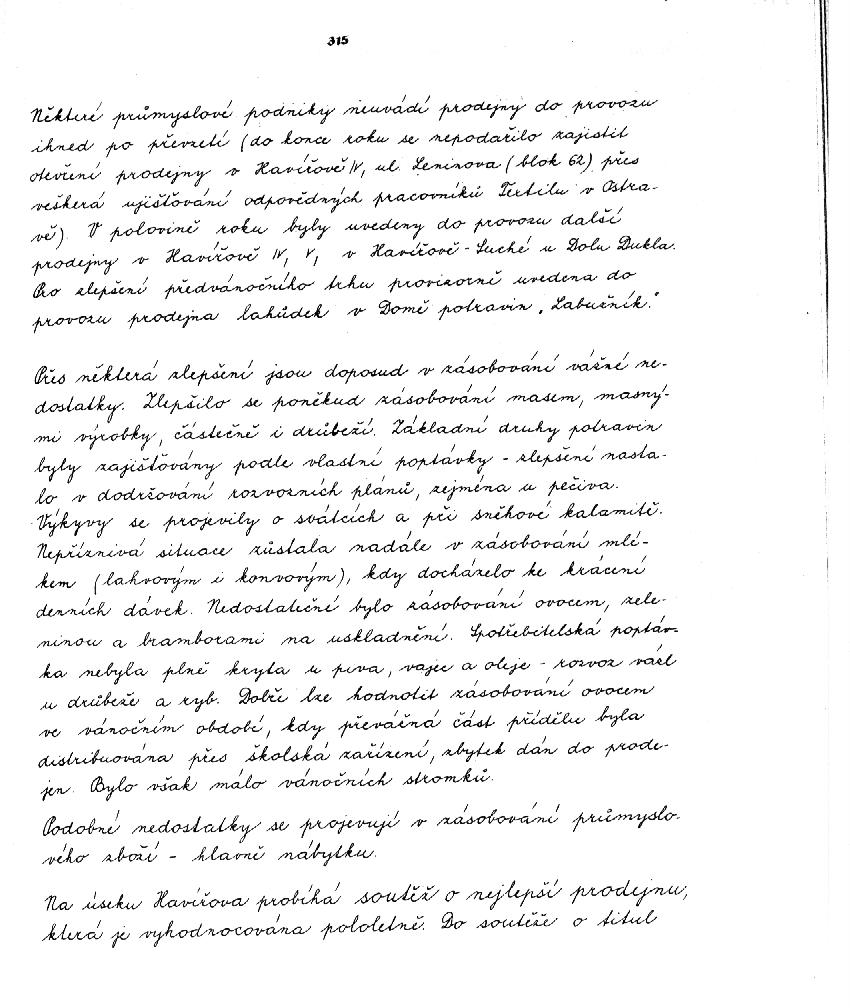 315
Některé průmyslové podniky neuvádí prodejny do provozu
ihned po převzetí (do konce roku se nepodařilo zajistit
otevření prodejny v Havířově IV, ul. Leninova (blok 62) přes
veškerá ujišťování odpovědných pracovníků Textilu v Ostra-
vě). V polovině roku byly uvedeny do provozu další
prodejny v Havířově IV, V, v Havířově - Suché u Dolu Dukla.
Pro zlepšení předvánočního trhu provizorně uvedena do
provozu prodejna lahůdek v Domě potravin „Labužník."
Přes některá zlepšení jsou doposud v zásobování vážné ne-
dostatky. Zlepšilo se poněkud zásobování masem, masný-
mi výrobky, částečně i drůbeží. Základní druhy potravin
byly zajišťovány podle vlastní poptávky - zlepšení nasta-
lo v dodržování rozvozních plánů, zejména u pečiva.
Výkyvy se projevily o svátcích a při sněhové kalamitě.
Nepříznivá situace zůstala nadále v zásobování mlé-
kem (lahvovým i konvovým), kdy docházelo ke krácení
denních dávek. Nedostatečné bylo zásobování ovocem, zele-
ninou a bramborami na uskladnění. Spotřebitelská poptáv-
ka nebyla plně kryta u piva, vajec a oleje - rozvoz vázl
u drůbeže a ryb. Dobře lze hodnotit zásobování ovocem
ve vánočním období, kdy převážná část přídělu byla
distribuována přes školská zařízení, zbytek dán do prode-
jen. Bylo však málo vánočních stromků.
Podobné nedostatky se projevují v zásobování průmyslo-
vého zboží - hlavně nábytku.
Na úseku Havířova probíhá soutěž o nejlepší prodejnu,
která je vyhodnocována pololetně. Do soutěže o titul